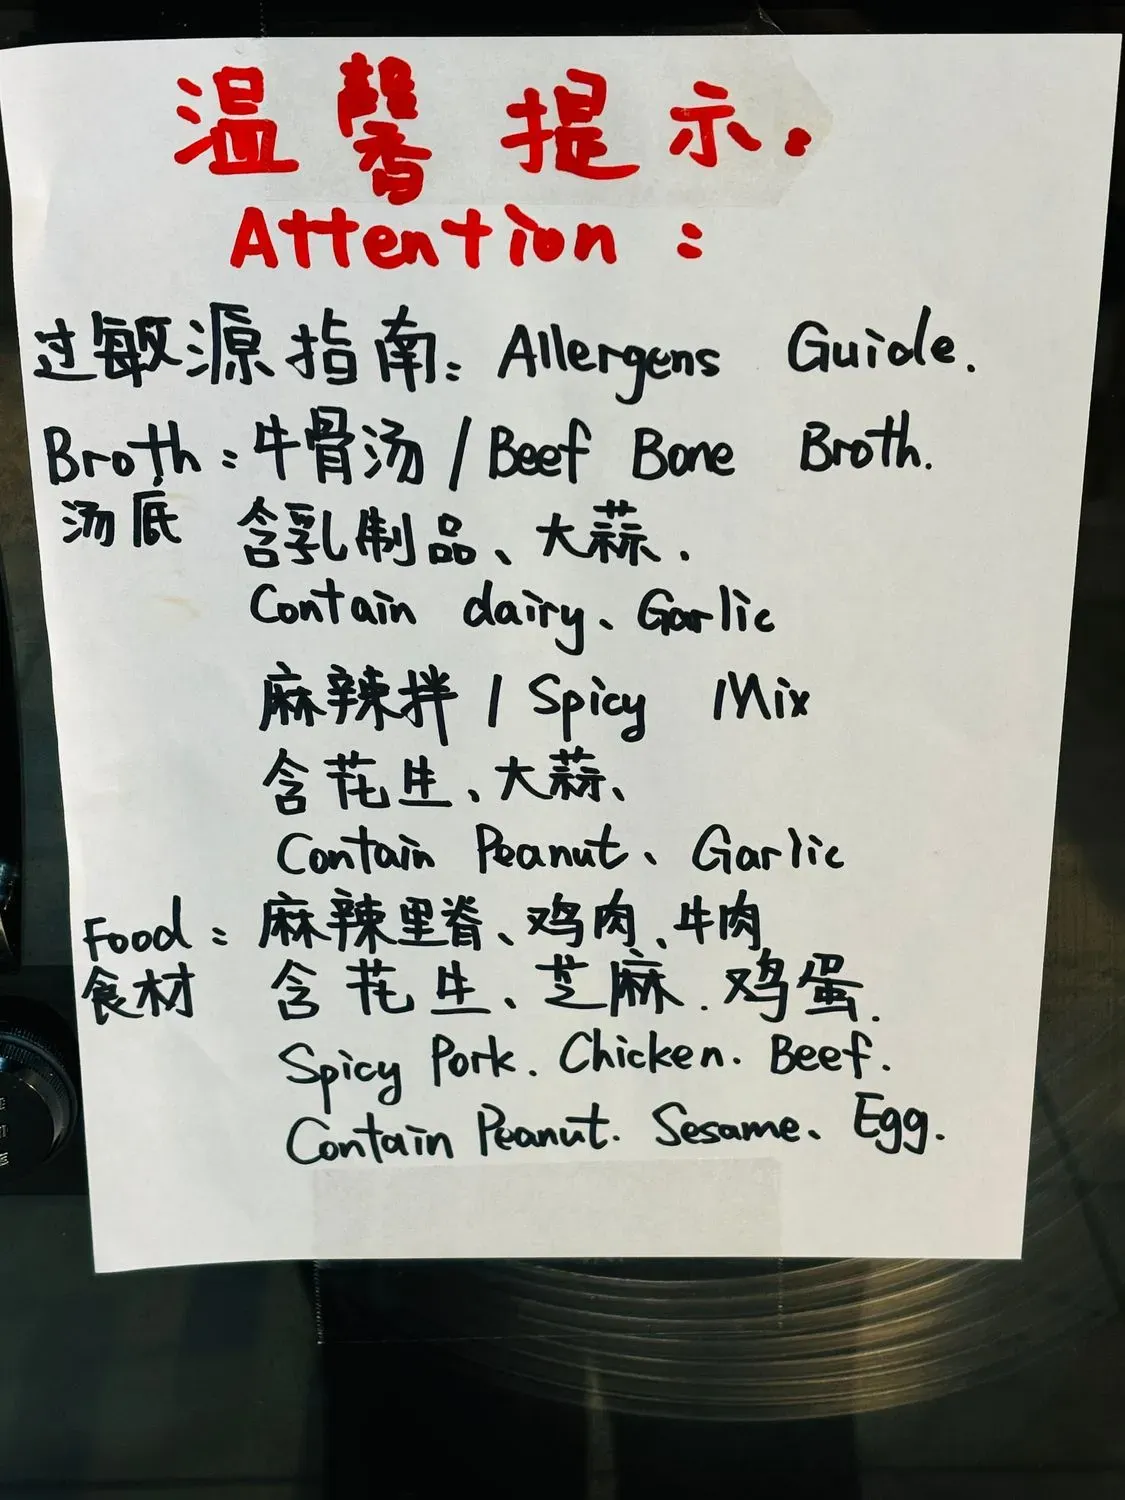 温馨提示.
Attention :
过敏源指南: Allergens Guide.
Broth : 牛骨汤 / Beef Bone Broth.
汤底 含乳制品、大蒜.
Contain dairy、Garlic
麻辣拌 / Spicy Mix
含花生、大蒜、
Contain Peanut、Garlic
Food : 麻辣里脊、鸡肉、牛肉
食材 含花生、芝麻.鸡蛋.
Spicy Pork. Chicken. Beef.
Contain Peanut. Sesame、Egg.